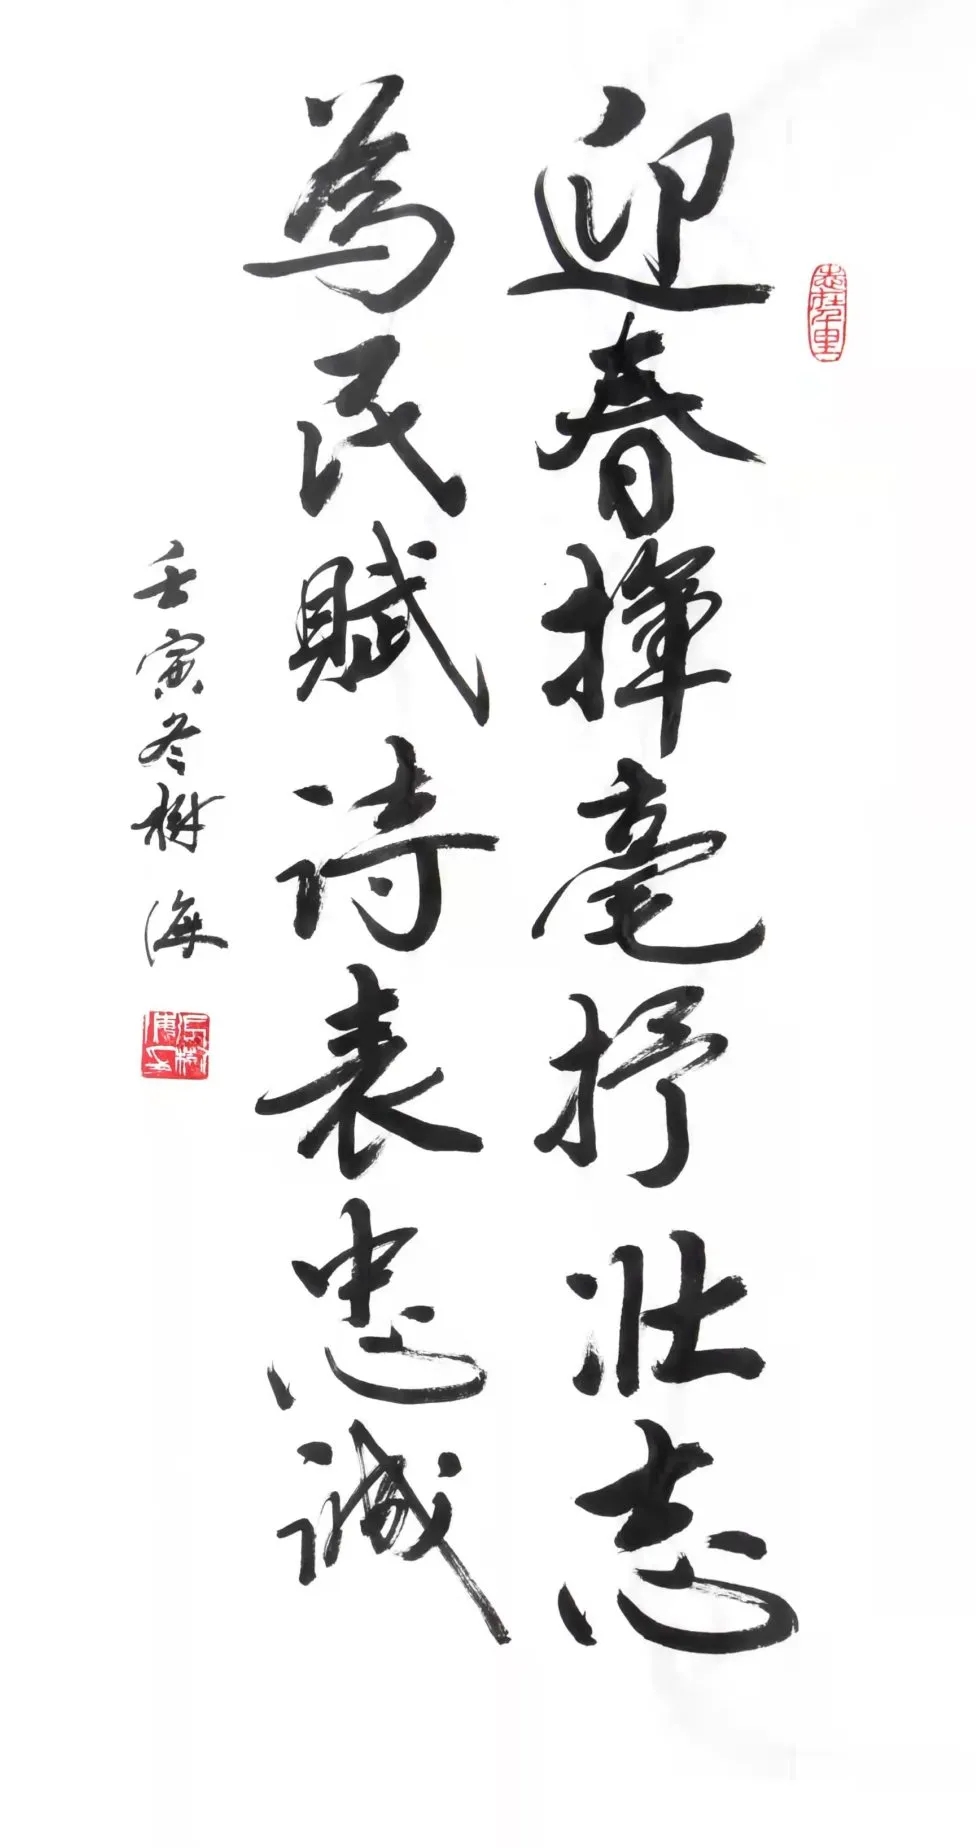 迎春揮毫抒壯志
為民賦诗表忠诚
壬寅冬樹海